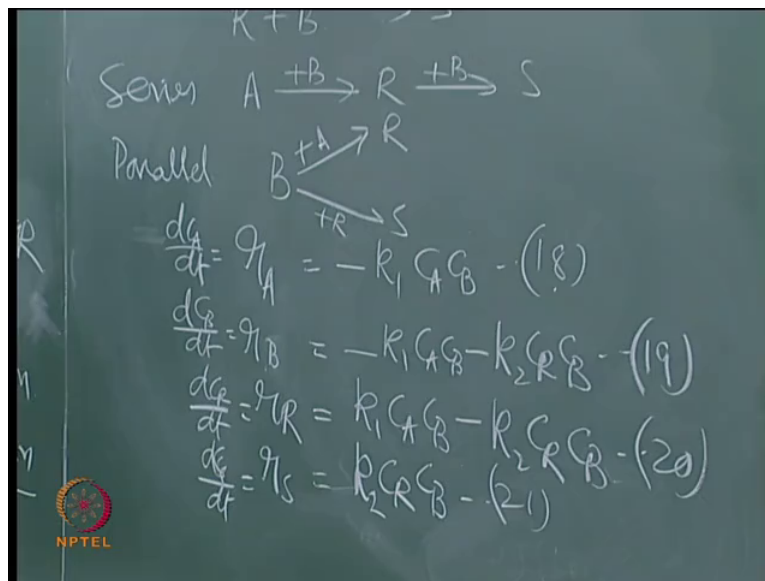 R + B → S
Series A +B→ R +B→ S
Parallel B +A→ R
+R→ S
dC_A/dt = r_A = -k_1 C_A C_B - (18)
dC_B/dt = r_B = -k_1 C_A C_B - k_2 C_R C_B - (19)
dC_R/dt = r_R = k_1 C_A C_B - k_2 C_R C_B - (20)
dC_S/dt = r_S = k_2 C_R C_B - (21)
R
n
n
NPTEL